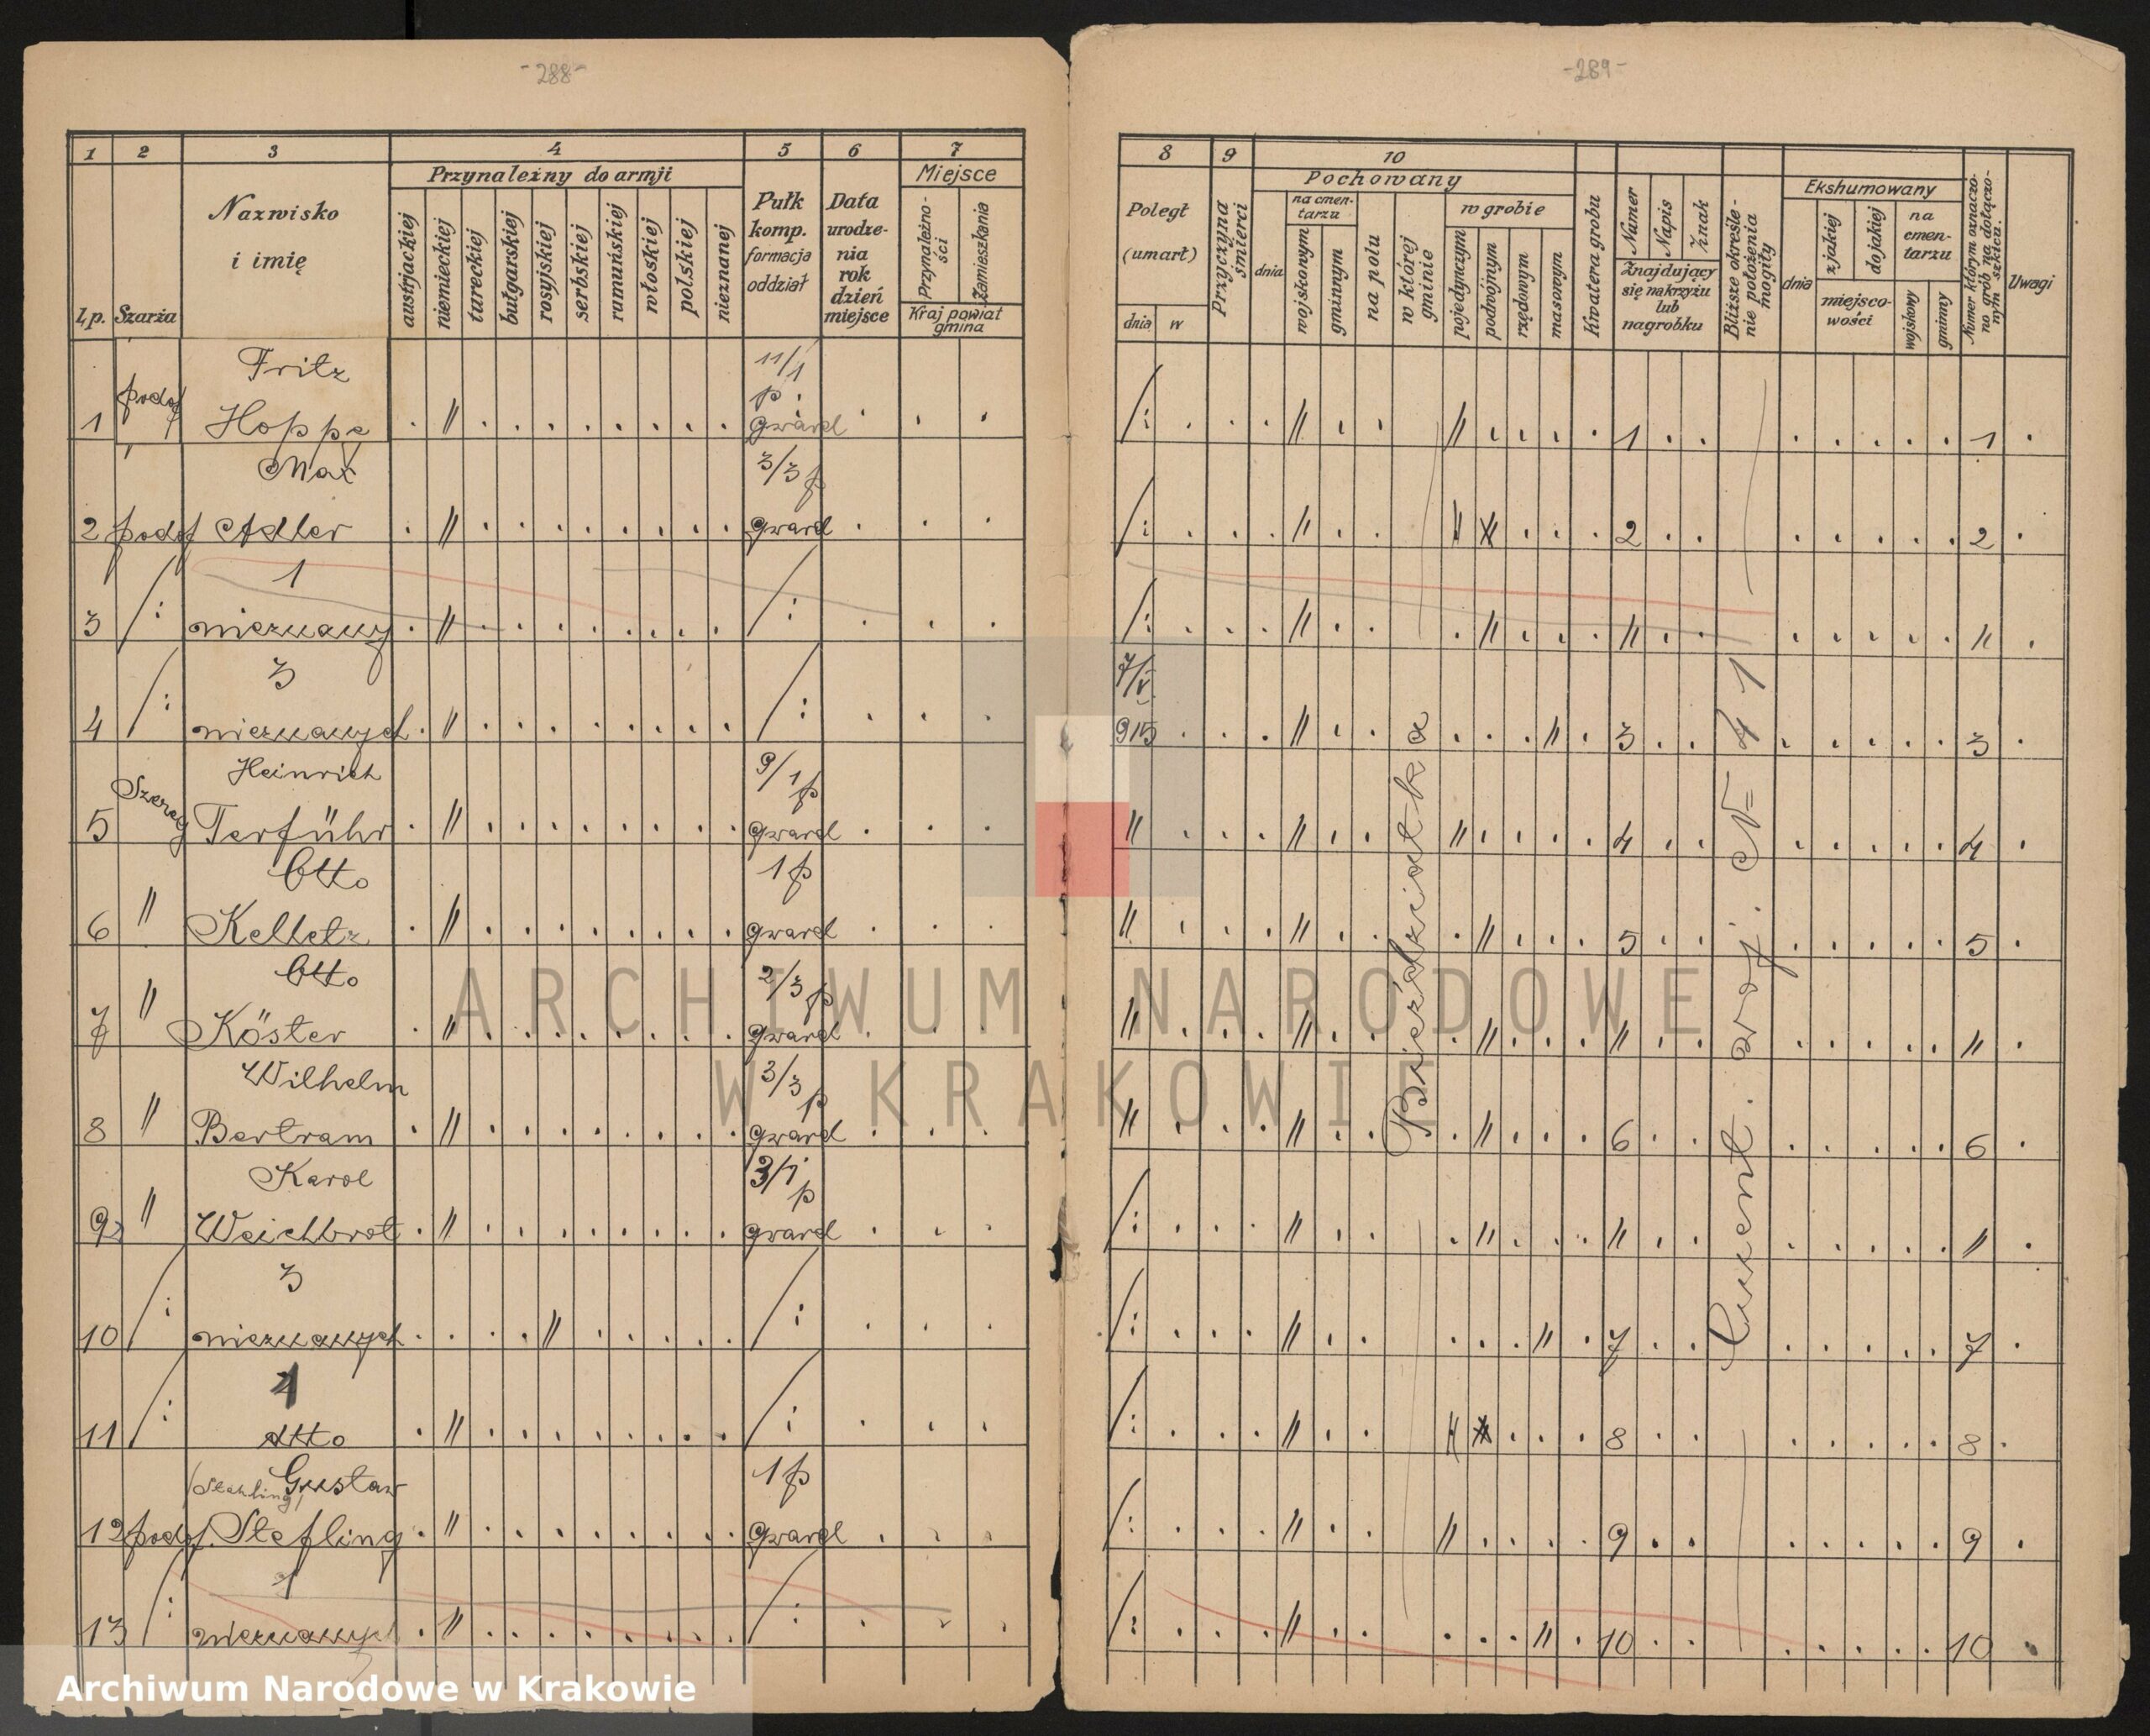 -288-
1 2 3 4 5 6 7
l.p. Szarża Nazwisko i imię Przynależny do armji Pułk komp. formacja oddział Data urodzenia rok dzień miejsce Miejsce
austrjackiej niemieckiej tureckiej bułgarskiej rosyjskiej serbskiej rumuńskiej włoskiej polskiej nieznanej Przynależności Zamieszkania
Kraj powiat gmina
Fritz 11/1
p.
1 podof Hoppe . " . . . . . . . . gward . . .
Max 3/3 p
2 podof Adler . " . . . . . . . . gward . . .
1
3 /: nieznany . " . . . . . . . . /: . . .
3
4 /: nieznanych . " . . . . . . . . /: . . .
Heinrich 9/1 p
5 Szereg Terführ . " . . . . . . . . gward . . .
Otto 1 p
6 " Kelletz . " . . . . . . . . gward . . .
Otto 2/3 p
7 " Köster . " . . . . . . . . gward . . .
Wilhelm 3/3 p
8 " Bertram . " . . . . . . . . gward . . .
Karol 3/1 p
9 " Weichbrot . " . . . . . . . . gward . . .
3
10 /: nieznanych . . . . " . . . . . /: . . .
1
11 /: Otto . " . . . . . . . . /: . . .
(Stahling) Gustaw 1 p
12 podof. Stefling . " . . . . . . . . gward . . .
1
13 /: nieznanych . " . . . . . . . . /: . . .
-289-
8 9 10
Poległ (umarł) Przyczyna śmierci Pochowany Kwatera grobu Numer Napis Znak Bliższe określenie położenia mogiły Ekshumowany Numer którym oznaczono grób na dołączonym szkicu. Uwagi
dnia w dnia na cmentarzu wojskowym gminnym na polu w której gminie w grobie pojedynczym podwójnym rzędowym masowym
Znajdujący się na krzyżu lub nagrobku
dnia z jakiej do jakiej miejscowości na cmentarzu wojskowy gminny
/: . . . " . . " . . . . 1 . . . . . . . 1 .
/: . . . " . . . . . 2 . . . . . . . 2 .
/: . . . " . . . " . . . " . . . . . . . " .
7/V
915 . . . " . . . . . " . 3 . . . . . . . 3 .
" . . . " . . " . . . . 4 . . . . . . . 4 .
" . . . " . . . " . . . 5 . . . . . . . 5 .
" . . . " . . . " . . . " . . . . . . . " .
" . . . " . . . " . . . 6 . . . . . . . 6 .
/: . . . " . . . " . . . " . . . . . . . " .
/: . . . " . . . . . " . 7 . . . . . . . 7 .
/: . . . " . . . . . 8 . . . . . . . 8 .
/: . . . " . . " . . . . 9 . . . . . . . 9 .
/: . . . " . . . . . " . 10 . . . . . . . 10 .
Bieździatka
Cment. woj. N= 41
ARCHIWUM NARODOWE
W KRAKOWIE
Archiwum Narodowe w Krakowie